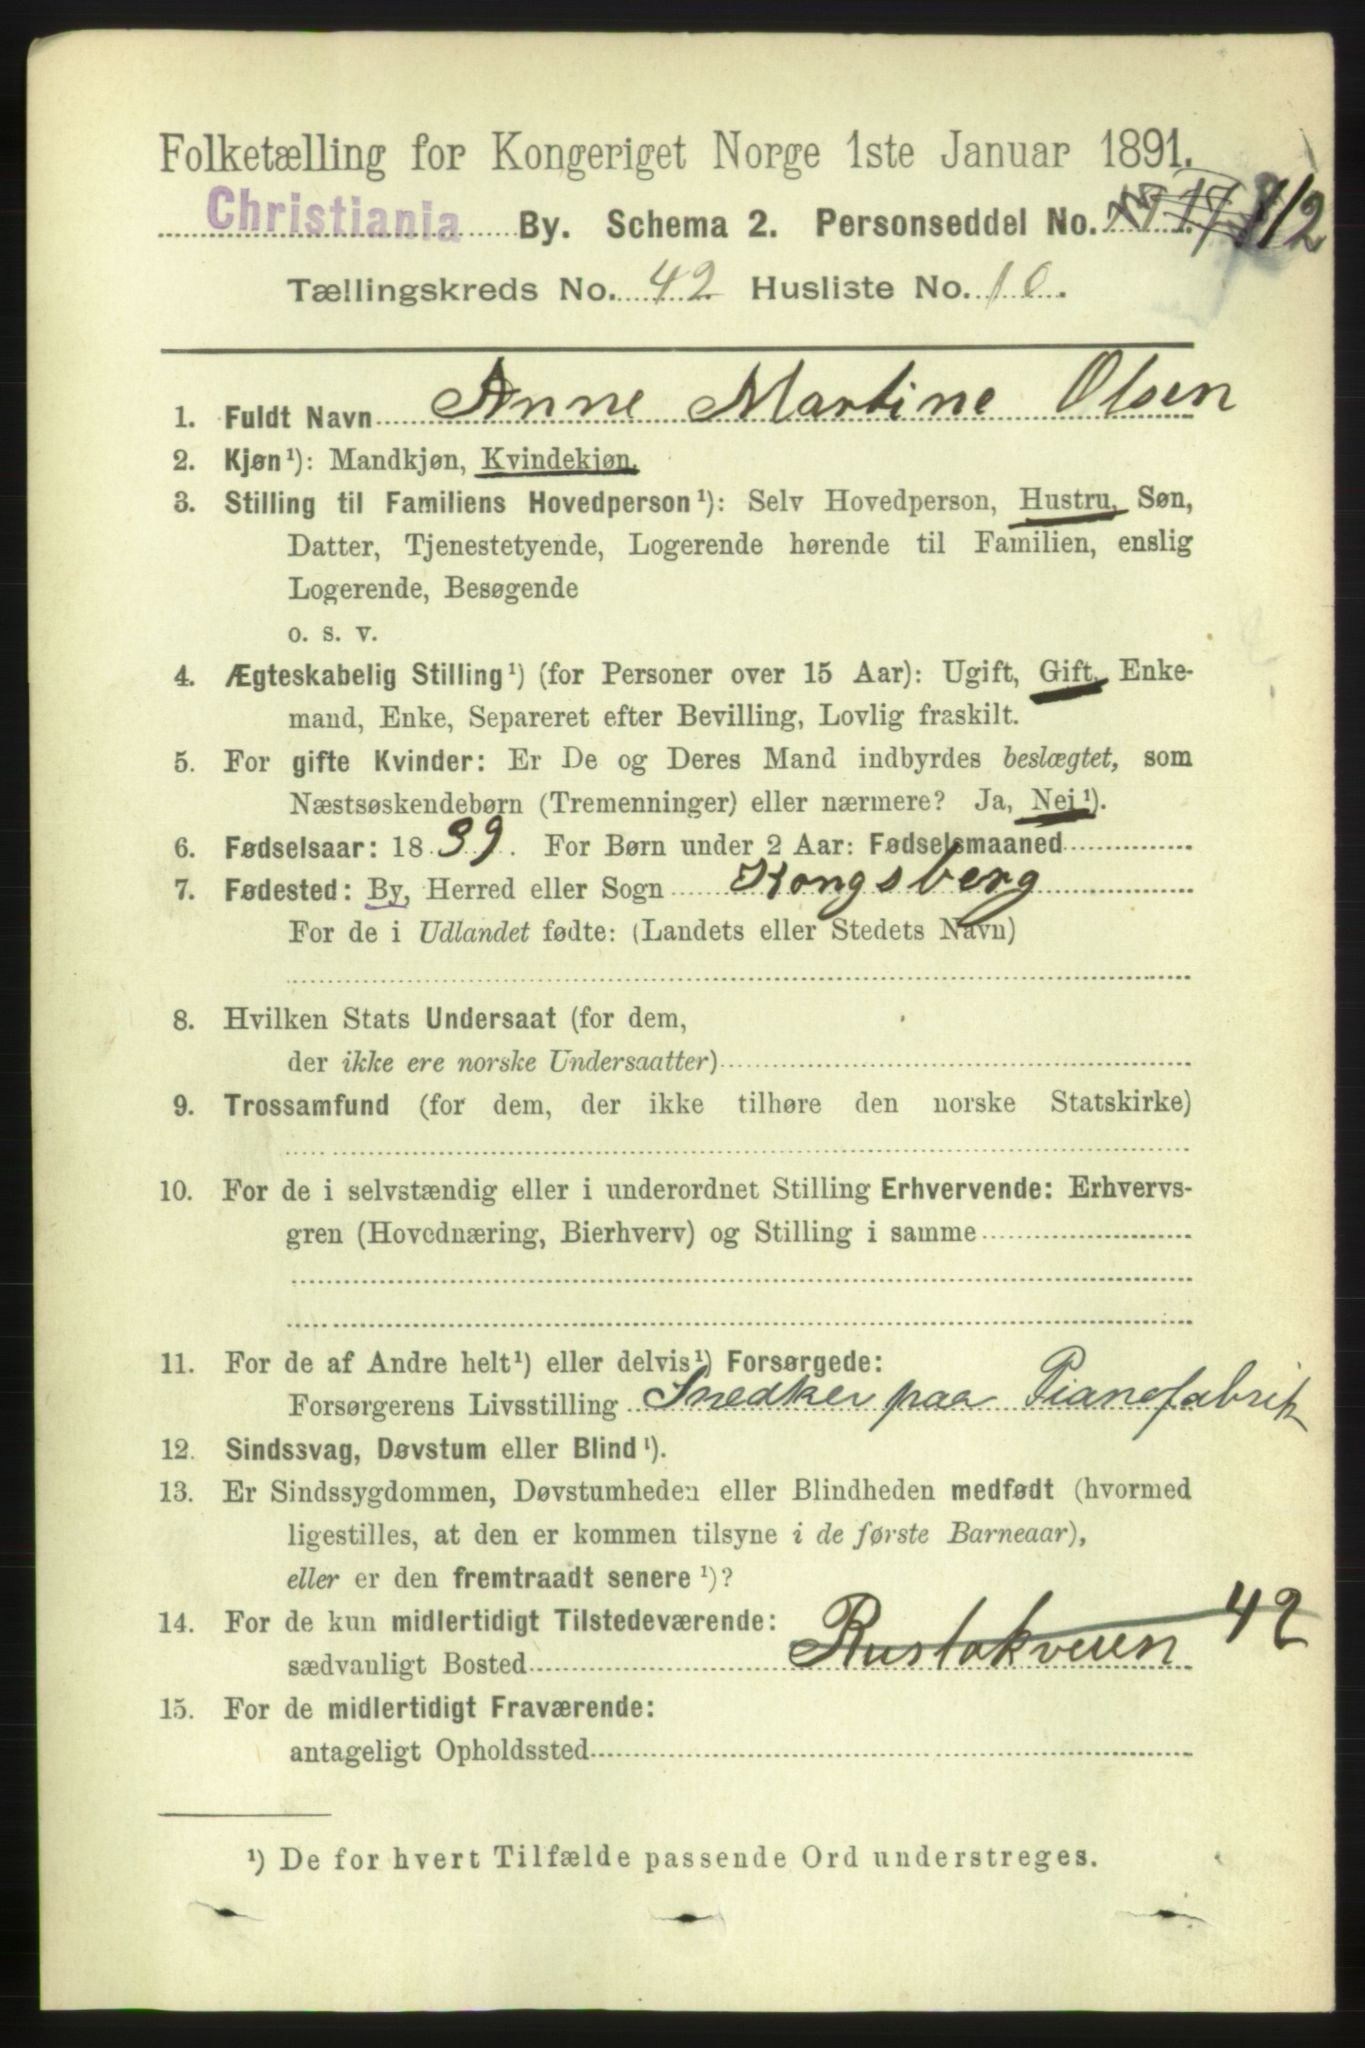 Folketælling for Kongeriget Norge 1ste Januar 1891.
Christiania By. Schema 2. Personseddel No. 112
Tællingskreds No. 42 Husliste No. 10.
1. Fuldt Navn Anne Martine Olsen
2. Kjøn¹): Mandkjøn, Kvindekjøn.
3. Stilling til Familiens Hovedperson¹): Selv Hovedperson, Hustru, Søn,
Datter, Tjenestetyende, Logerende hørende til Familien, enslig
Logerende, Besøgende
o. s. v.
4. Ægteskabelig Stilling¹) (for Personer over 15 Aar): Ugift, Gift, Enke-
mand, Enke, Separeret efter Bevilling, Lovlig fraskilt.
5. For gifte Kvinder: Er De og Deres Mand indbyrdes beslægtet, som
Næstsøskendebørn (Tremenninger) eller nærmere? Ja, Nei¹).
6. Fødselsaar: 1839. For Børn under 2 Aar: Fødselsmaaned
7. Fødested: By, Herred eller Sogn Kongsberg
For de i Udlandet fødte: (Landets eller Stedets Navn)
8. Hvilken Stats Undersaat (for dem,
der ikke ere norske Undersaatter)
9. Trossamfund (for dem, der ikke tilhøre den norske Statskirke)
10. For de i selvstændig eller i underordnet Stilling Erhvervende: Erhvervs-
gren (Hovednæring, Bierhverv) og Stilling i samme
11. For de af Andre helt¹) eller delvis¹) Forsørgede:
Forsørgerens Livsstilling Snedker paa Pianofabrik
12. Sindssvag, Døvstum eller Blind¹).
13. Er Sindssygdommen, Døvstumheden eller Blindheden medfødt (hvormed
ligestilles, at den er kommen tilsyne i de første Barneaar),
eller er den fremtraadt senere¹)?
14. For de kun midlertidigt Tilstedeværende:
sædvanligt Bosted Rustokveien 42
15. For de midlertidigt Fraværende:
antageligt Opholdssted
¹) De for hvert Tilfælde passende Ord understreges.